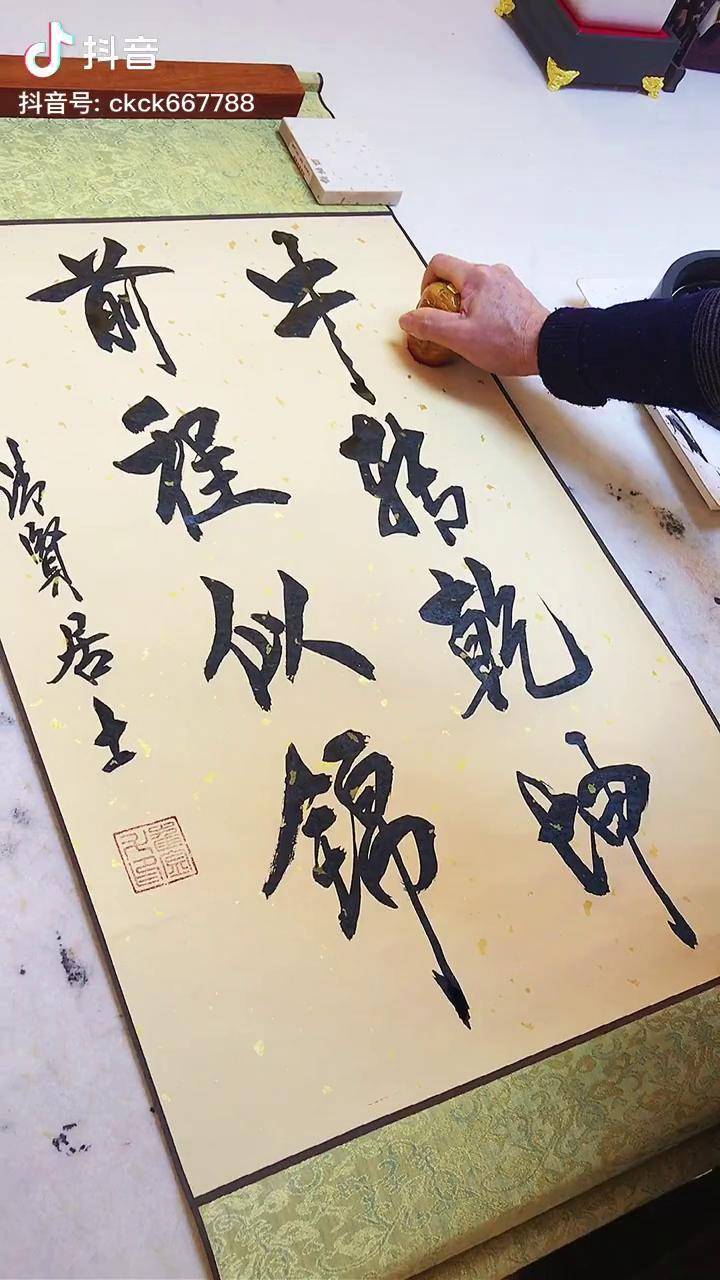 抖音
抖音号: ckck667788
牛转乾坤
前程似锦
清贤居士